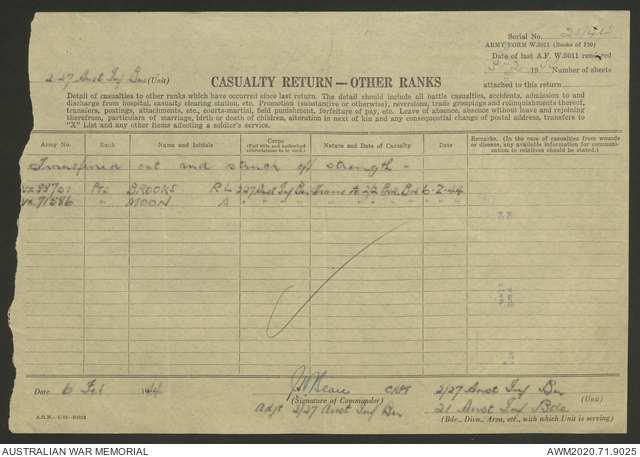 Serial No. 21/44
ARMY FORM W.3011 (Books of 150)
Date of last A.F. W.3011 rendered
19 Number of sheets
attached to this return
2/27 Aust Inf Bn (Unit)
CASUALTY RETURN—OTHER RANKS
Detail of casualties to other ranks which have occurred since last return. The detail should include all battle casualties, accidents, admission to and
discharge from hospital, casualty clearing station, etc. Promotion (substantive or otherwise), reversions, trade groupings and relinquishments thereof,
transfers, postings, attachments, etc., courts-martial, field punishment, forfeiture of pay, etc. Leave of absence, absence without leave and rejoining
therefrom, particulars of marriage, birth or death of children, alteration in next of kin and any consequential change of postal address, transfers to
"X" List and any other items affecting a soldier's service.
Army No. Rank Name and Initials Corps (Full title and authorised abbreviations to be used.) Nature and Date of Casualty Date Remarks. (In the case of casualties from wounds or disease, any available information for communication to relatives should be stated.)
Transferred out and struck off strength -
Pte BROOKS R.L 2/27 Aust Inf Bn Trans to 2/2 Bn 6-2-44
VX.71586 " MOON A " " " " " " " "
Date 6 Feb 1944
CAPT
(Signature of Commander)
Adjt 2/27 Aust Inf Bn
2/27 Aust Inf Bn (Unit)
21 Aust Inf Bde
(Bde., Divn., Area, etc., with which Unit is serving)
AUSTRALIAN WAR MEMORIAL
AWM2020.71.9025